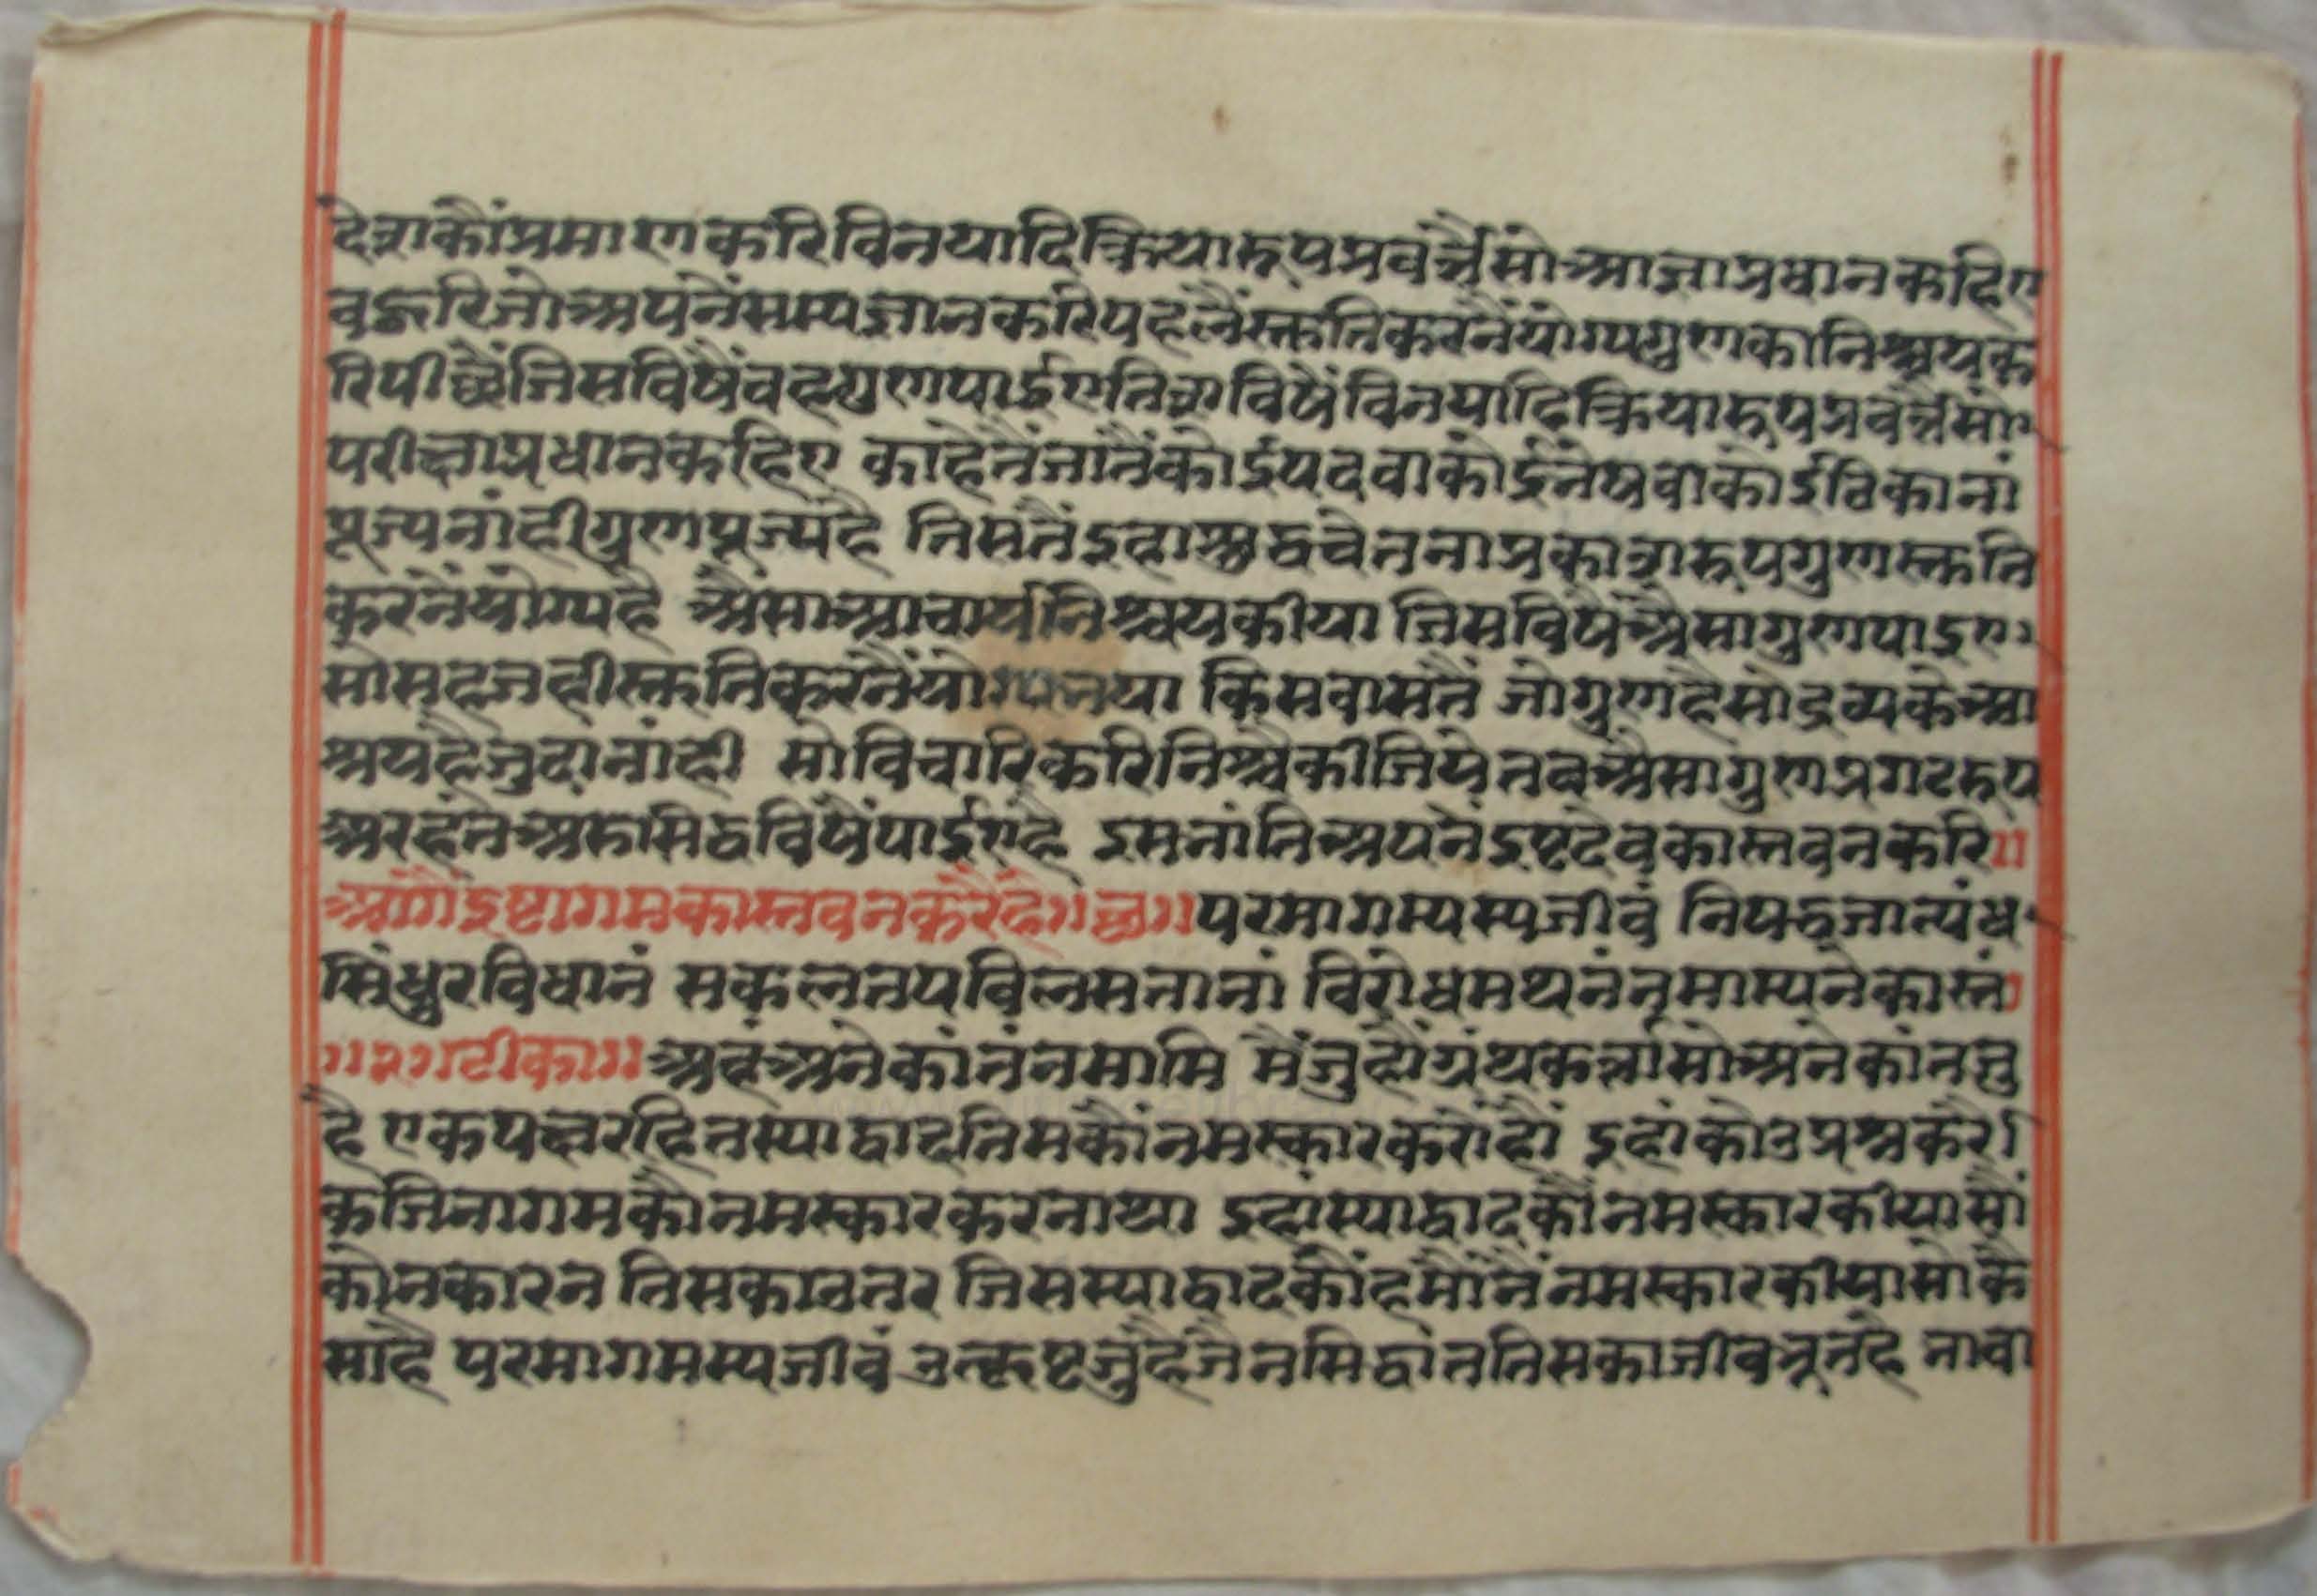 देशकौंप्रमाणकरिविनयादिक्रियारूपप्रवर्त्तैसोआज्ञाप्रधानकहिए
वहुरिजोअपनेंसम्यज्ञानकरिपहलैंस्तुतिकरनैंयोग्यगुणकानिश्चयक
रिपीछैंजिसविषैंवहगुणपाईएतिशविषैंविनयादिक्रियारूपप्रवर्त्तैसो
परीक्षाप्रधानकहिए काहेतैंजातैंकोईपदवाकोईभेषवाकोईठिकानां
पूज्यनांहीगुणपूज्यहै तिसतैंइहाशुद्धचेतनाप्रकाशरूपगुणस्तुति
करनैंयोग्यहै अैंसाआचार्यनिश्चयकीया जिसविषैंअैसागुणपाइए
सोसहजहीस्तुतिकरनैंयोग्यभया किसवासतैं जोगुणहैसोद्रव्यकेआ
श्रयहैजुदानांही सोविचारिकरिनिश्चैकीजियेतबअैसागुणप्रगटरूप
अरहंतअरुसिद्धविषैंपाईएहै इसभांतिअपनेइष्टदेवकास्तवनकरि॥
आगैंइष्टागमकास्तवनकरैंहै॥छ॥परमागम्यस्यजीवं निषिद्धजात्यंध
सिंधुरविधानं सकलनयविलसतानां विरोधमथनंनमाम्यनेकान्तं
॥२॥टीका॥अहंअनेकांतंनमामि मैंजुहौंग्रंथकर्त्तासोअनेकांतजु
है एकपक्षरहितस्याद्वादतिसकौंनमस्कारकरोंहौं इहांकोउप्रश्नकरै
कजिनागमकौनमस्कारकरनाथा इहांस्याद्वादकौंनमस्कारकीयासो
कोनकारन तिसकाउतर जिसस्याद्वादकौंहमोंनैंनमस्कारकीयासोकै
साहै परमागमस्यजीवं उत्कृष्टजुहैजैनसिद्धांततिसकाजीवभूतहै भावा